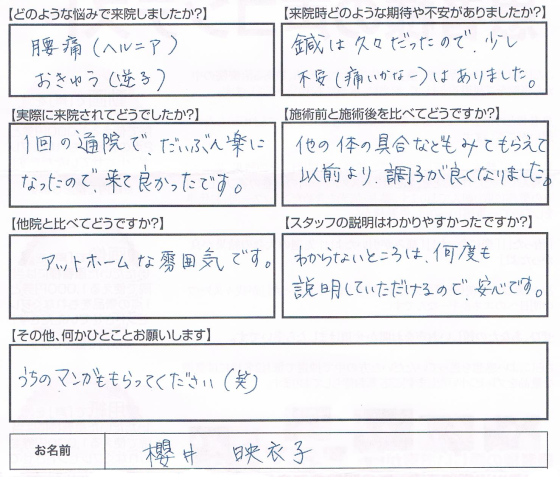 【どのような悩みで来院しましたか?】
腰痛(ヘルニア)
おきゅう(逆子)
【来院時どのような期待や不安がありましたか?】
鍼は久々だったので、少し
不安(痛いかなー)はありました。
【実際に来院されてどうでしたか?】
1回の通院で、だいぶん楽に
なったので、来て良かったです。
【施術前と施術後を比べてどうですか?】
他の体の具合などもみてもらえて
以前より、調子が良くなりました。
【他院と比べてどうですか?】
アットホームな雰囲気です。
【スタッフの説明はわかりやすかったですか?】
わからないところは、何度も
説明していただけるので、安心です。
【その他、何かひとことお願いします】
うちのマンガももらってください(笑)
お名前
櫻井 映衣子